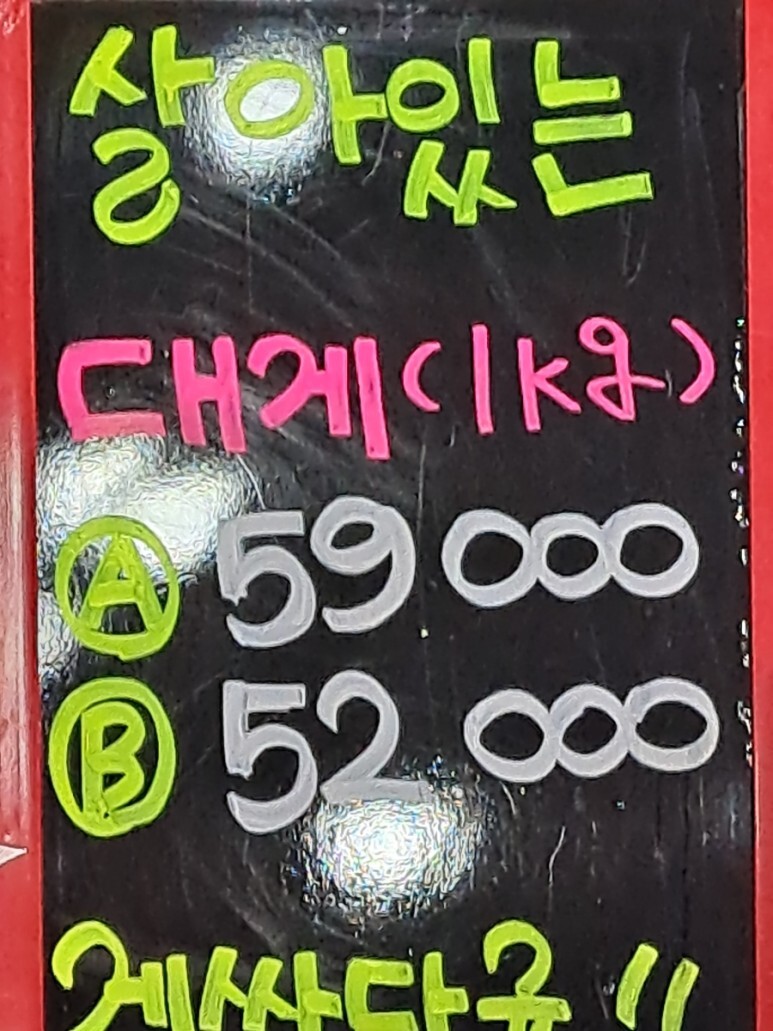 살아있는
대게(1kg)
Ⓐ 59000
Ⓑ 52000